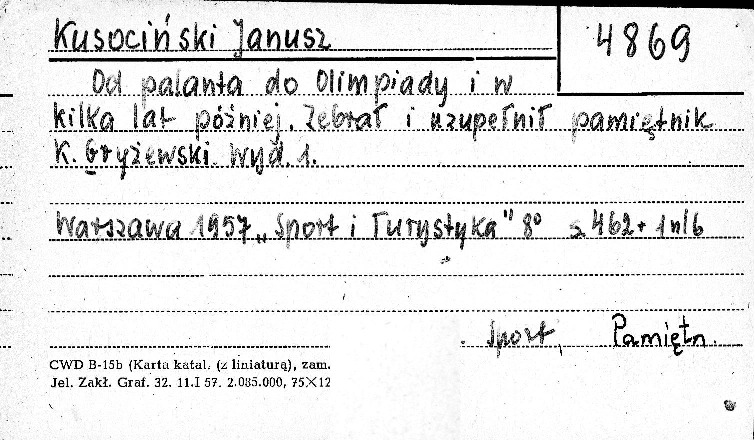 Kusociński Janusz
4869
Od palanta do Olimpiady i w
kilka lat później. Zebrał i uzupełnił pamiętnik
K. Gryżewski. Wyd. 1.
Warszawa 1957 „Sport i Turystyka" 8° s. 462 + 1 nlb
Sport, Pamiętn.
CWD B-15b (Karta katal. (z liniaturą), zam.
Jel. Zakł. Graf. 32. 11.I 57. 2.085.000, 75×12